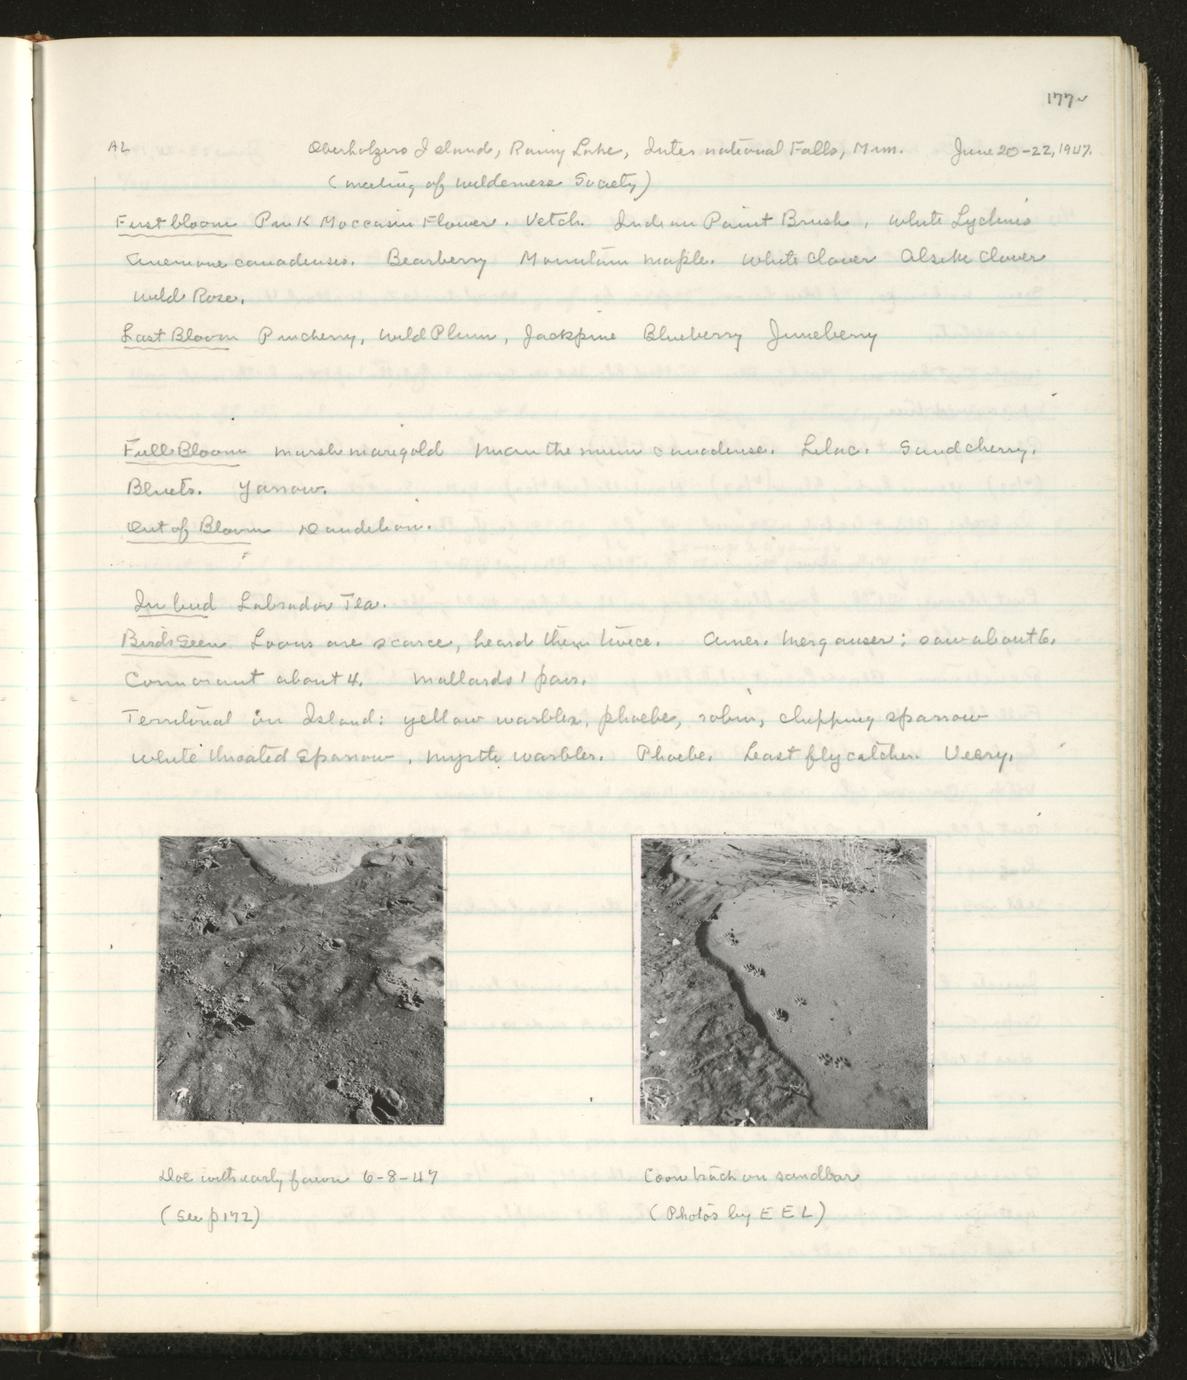 177
AL Oberholzers Island, Rainy Lake, International Falls, Minn. June 20-22, 1947.
(meeting of Wilderness Society)
First bloom Pink Moccasin Flower. Vetch. Indian Paint Brush, White Lychnis
Anemone canadensis. Bearberry Mountain maple. White clover Alsike clover
Wild Rose.
Last Bloom Pincherry, Wild Plum, Jackpine Blueberry Juneberry
Full Bloom marsh marigold Maianthemum canadense. Lilac. Sandcherry.
Bluets. Yarrow.
Out of Bloom Dandelion.
In bud Labrador Tea.
Birds Seen Loons are scarce, heard them twice. Amer. Merganser; saw about 6.
Cormorant about 4. Mallards 1 pair.
Territorial on Island: yellow warbler, phoebe, robin, chipping sparrow
white throated sparrow, myrtle warbler. Phoebe. Least flycatcher. Veery.
Doe with early fawn 6-8-47
(See p172)
Coon track on sandbar
(Photos by EEL)